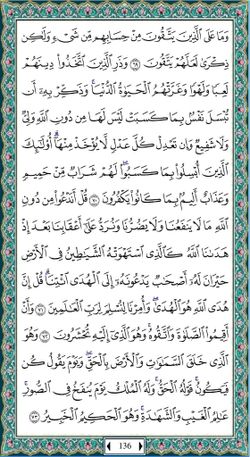 وَمَا عَلَى الَّذِينَ يَتَّقُونَ مِنْ حِسَابِهِم مِّن شَيْءٍ وَلَٰكِن
ذِكْرَىٰ لَعَلَّهُمْ يَتَّقُونَ ٦٩ وَذَرِ الَّذِينَ اتَّخَذُوا دِينَهُمْ
لَعِبًا وَلَهْوًا وَغَرَّتْهُمُ الْحَيَوٰةُ الدُّنْيَا ۚ وَذَكِّرْ بِهِ أَن
تُبْسَلَ نَفْسٌ بِمَا كَسَبَتْ لَيْسَ لَهَا مِن دُونِ اللَّهِ وَلِيٌّ
وَلَا شَفِيعٌ وَإِن تَعْدِلْ كُلَّ عَدْلٍ لَّا يُؤْخَذْ مِنْهَا ۗ أُولَٰئِكَ
الَّذِينَ أُبْسِلُوا بِمَا كَسَبُوا ۖ لَهُمْ شَرَابٌ مِّنْ حَمِيمٍ
وَعَذَابٌ أَلِيمٌ بِمَا كَانُوا يَكْفُرُونَ ٧٠ قُلْ أَنَدْعُوا مِن دُونِ
اللَّهِ مَا لَا يَنفَعُنَا وَلَا يَضُرُّنَا وَنُرَدُّ عَلَىٰ أَعْقَابِنَا بَعْدَ إِذْ
هَدَىٰنَا اللَّهُ كَالَّذِي اسْتَهْوَتْهُ الشَّيَٰطِينُ فِي الْأَرْضِ
حَيْرَانَ لَهُ أَصْحَٰبٌ يَدْعُونَهُ إِلَى الْهُدَى ائْتِنَا ۗ قُلْ إِنَّ
هُدَى اللَّهِ هُوَ الْهُدَىٰ ۖ وَأُمِرْنَا لِنُسْلِمَ لِرَبِّ الْعَٰلَمِينَ ٧١ وَأَنْ
أَقِيمُوا الصَّلَوٰةَ وَاتَّقُوهُ ۚ وَهُوَ الَّذِي إِلَيْهِ تُحْشَرُونَ ٧٢ وَهُوَ
الَّذِي خَلَقَ السَّمَٰوَٰتِ وَالْأَرْضَ بِالْحَقِّ ۖ وَيَوْمَ يَقُولُ كُن
فَيَكُونُ ۚ قَوْلُهُ الْحَقُّ ۚ وَلَهُ الْمُلْكُ يَوْمَ يُنفَخُ فِي الصُّورِ ۚ
عَٰلِمُ الْغَيْبِ وَالشَّهَٰدَةِ ۚ وَهُوَ الْحَكِيمُ الْخَبِيرُ ٧٣
136